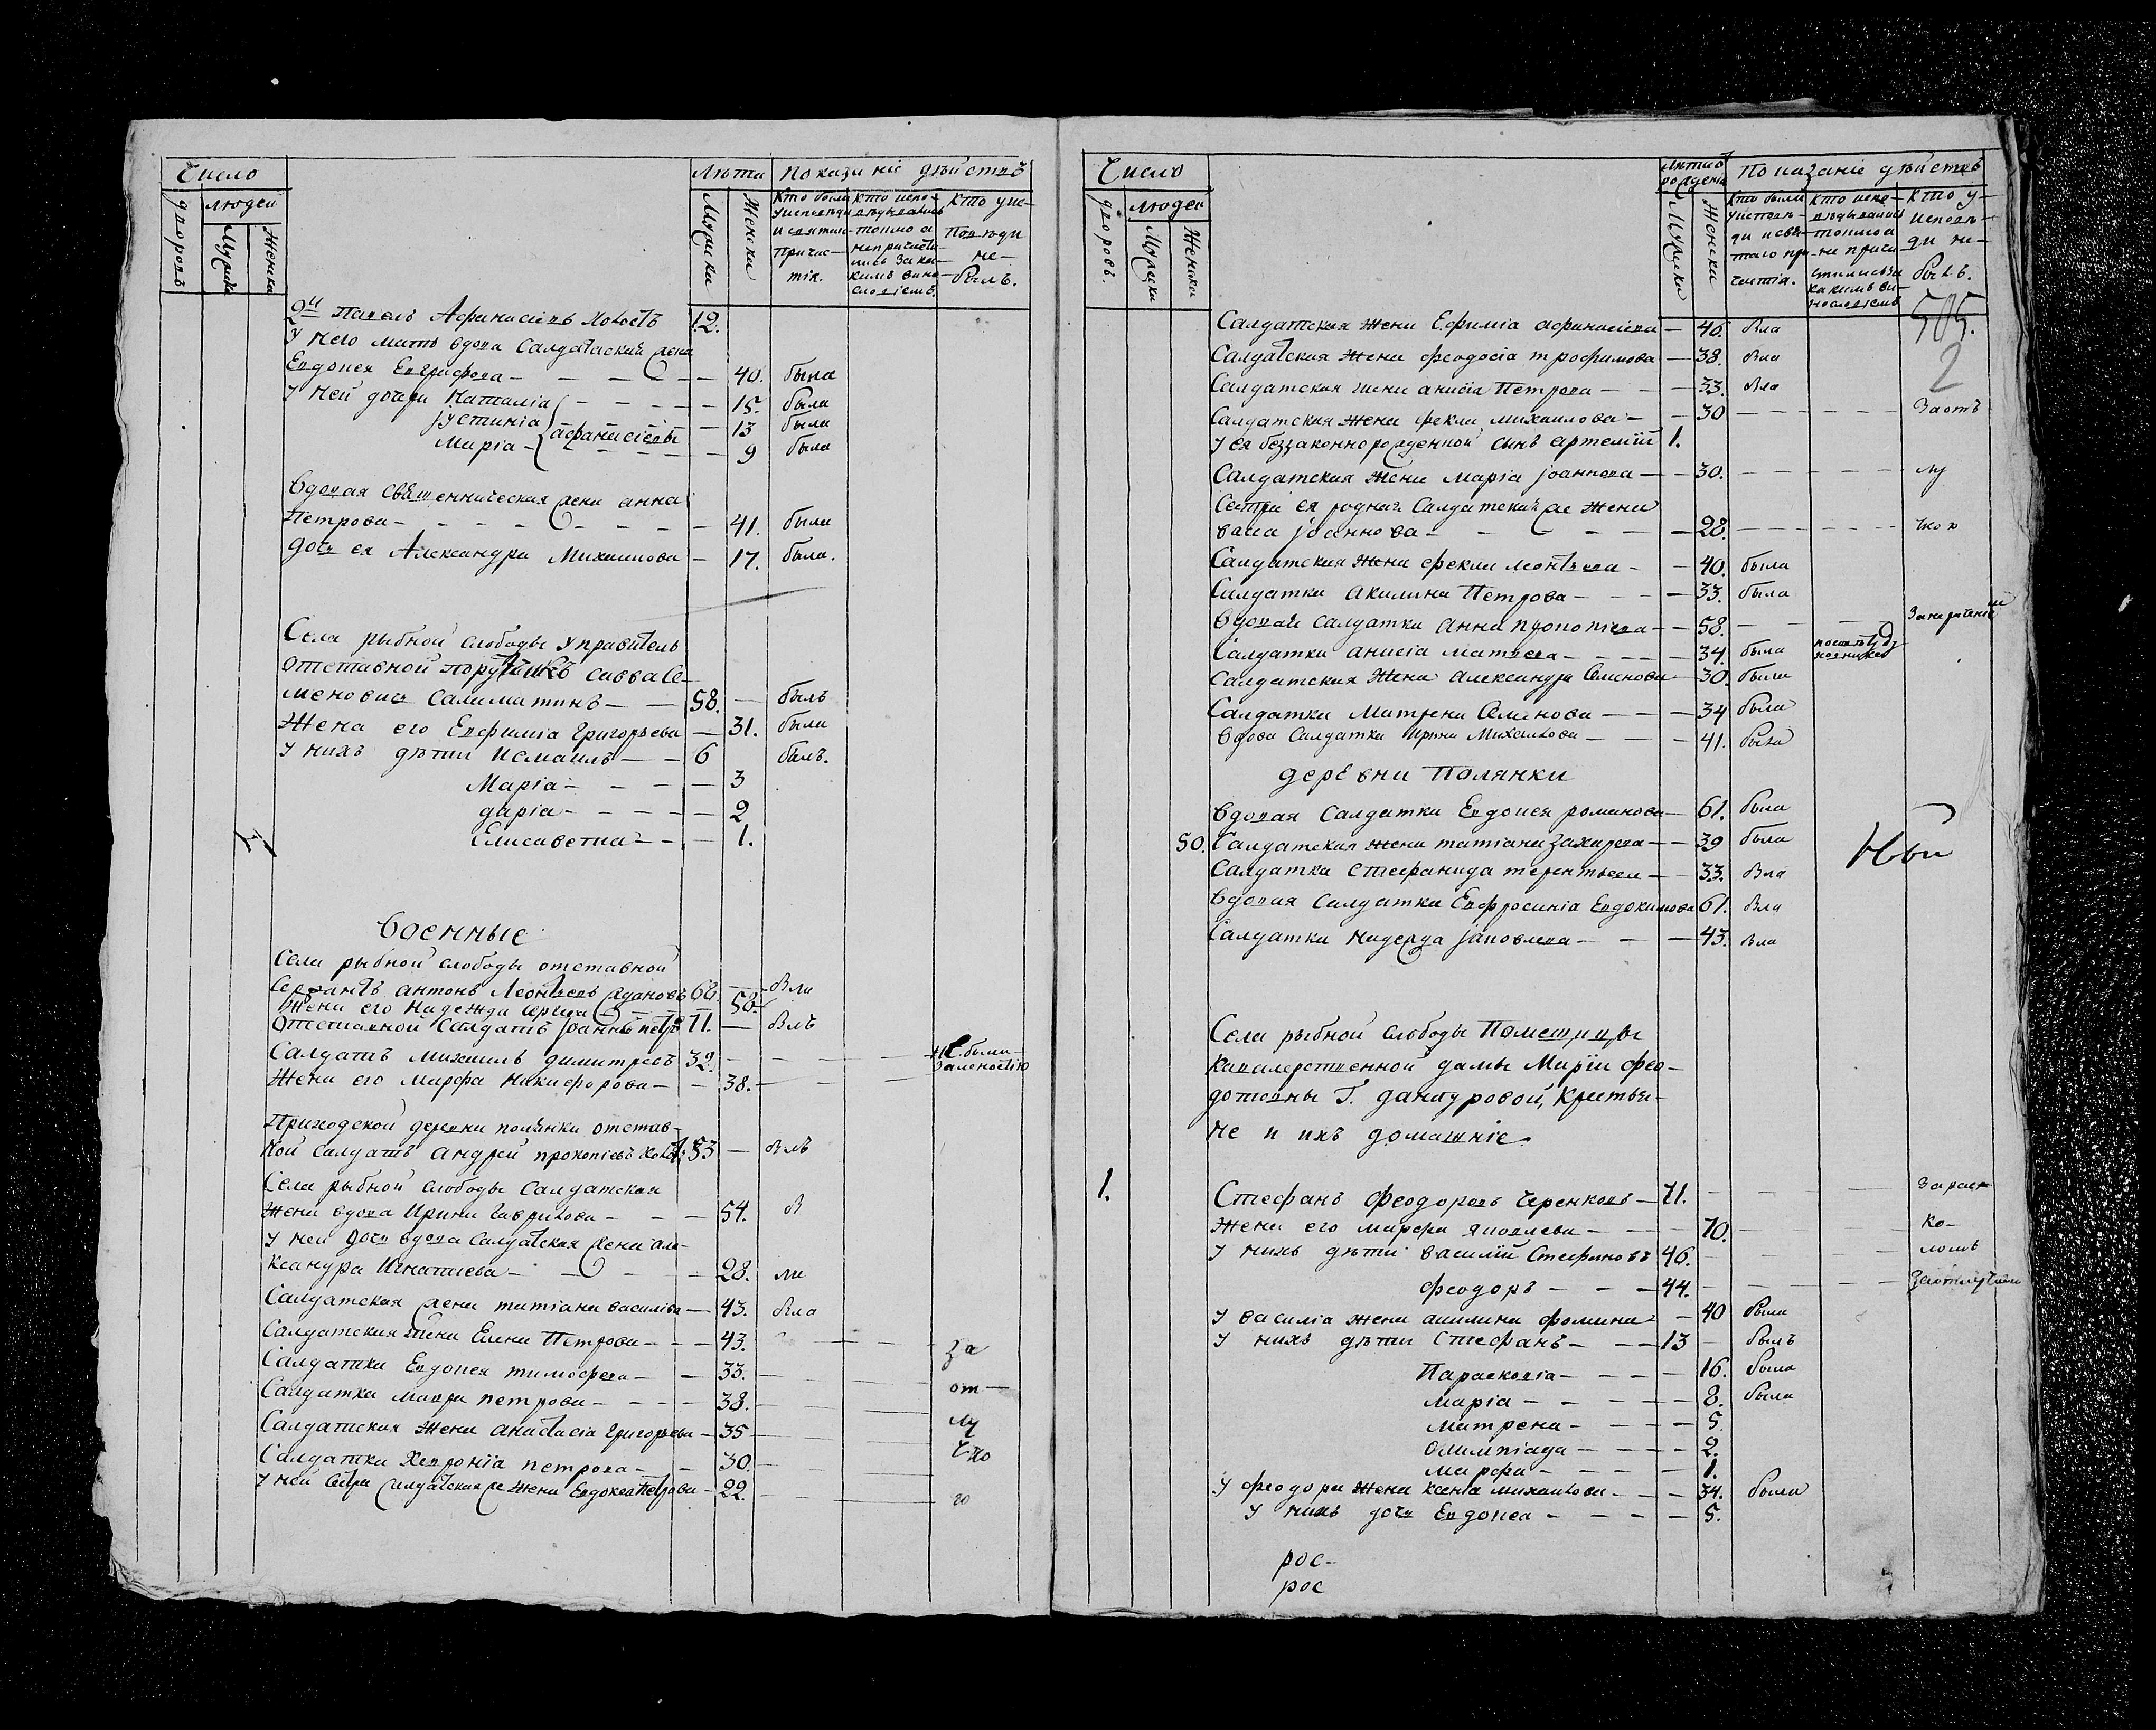 Число
людей
дворовъ
Мужска
Женска
Лѣта
Показаніе дѣйствъ
Мужска
Женска
Кто были
у исповѣди
и святаго
причас-
тія.
Кто испо-
вѣдывались
токмо а
непричасти-
лись за ка-
кимъ вино-
словіемъ.
Кто у ис-
повѣди
не-
былъ.
2й Павелъ Афанасіевъ холостъ 12.
У него мать вдова Салдатская жена
Евдокея Евграфова — 40. была
У ней дочери Наталіа — 15. была
Іустиніа афанасіевы — 13 была
Маріа — 9 была
Вдовая священническая жена анна
Петрова — 41. была
дочь ея Александра Михаилова — 17. была.
Села рыбной слободы управитель
отставной порутчикъ савва Се-
меновичь Саламатинъ — 58. — былъ
Жена его Евфиміа Григорьева — 31. была
У нихъ дѣти Исмаилъ — 6 былъ.
Маріа — 3
даріа — 2
Елисавета — 1.
Военные
Села рыбной слободы отставной
Сержантъ антонъ Леонтьевъ 62. — Бла
Жена его Надежда — 58
Отставной Салдатъ Іоаннъ петр 71. — Блъ
Салдатъ Михаилъ димитріевъ 32. — не были
Жена его Марфа Никифорова — 38. — за леностію
Приходской деревни полянки отстав-
ной Салдатъ андрей прокопіевъ холо 53 — Блъ
Села рыбной слободы Салдатская
жена вдова Ирина Гаврилова — 54. Б
У ней дочь вдова Салдатская жена але-
ксандра Игнатиева — 28. ла
Салдатская жена татіана василіева — 43. Бла
Салдатская жена Елена Петрова — 43. — за
Салдатка Евдокея тимофеева — 33. — от—
Салдатка Мавра петрова — 38. — лу
Салдатская жена анастасіа Григорьева — 35 — чко
Салдатка Хевроніа петрова — 30. —
У ней Сестра Салдатская же жена Евдокеа Петрова — 22. — ю
Число
людей
дворовъ.
Мужска
Женска
Лѣта от
рожденіа
Показаніе дѣйствъ
Мужска
Женска
Кто были
у исповѣ-
ди и свя-
таго при-
частіа.
Кто испо-
вѣдывались
токмо а
не прича-
стились за
какимъ ви-
нословіемъ
Кто у-
исповѣ-
ди не-
былъ.
505.
2
Салдатская жена Ефиміа афанасіева — 46. Бла
Салдатская жена феодосіа трофимова — 38. Бла
Салдатская жена анисіа Петрова — 33. Бла
Салдатская жена фекла михаилова — 30 — За отъ
У ея беззаконнорожденной сынъ артемій 1.
Салдатская жена Маріа Іоаннова — 30. — лу
Сестра ея родная Салдатская же жена
васа Іоаннова — 28. — чкою
Салдатская жена фекла леонтьева — 40. была
Салдатка акилина Петрова — 33. была
Вдовая Салдатка анна прокопіева — 58. — За нераченіемъ
Салдатка анисіа матвеева — 34. была
Салдатская жена александра Семенова — 30. была
Салдатка Матрена Семенова — 34 была
Вдова Салдатка Ирина Михаилова — 41. была
деревни Полянки
Вдовая Салдатка Евдокея романова — 61. была
50. Салдатская жена татіана захарова — 39 была
Салдатка Стефанида терентьева — 33. Бла
Вдовая Салдатка Евфросиніа Евдокимова 61. Бла
Салдатка надежда Іаковлева — 43. Бла
Села рыбной слободы Помещицы
Кавалерственной дамы Маріи фео-
дотовны Г. дантуровой, Крестья-
не и ихъ домашніе.
1. Стефанъ Феодоровъ Черенковъ — 71. — За раско-
Жена его марфа Яковлева — 70. — ко—
У нихъ дѣти василій Стефановъ 46. — ломъ
феодоръ — 44. — за отлучкою
У василіа жена акилина фомина — 40 была
У нихъ дѣти Стефанъ — 13 — былъ
Параскевіа — 16. была
Маріа — 8. была
Матрена — 5.
Олимпіада — 2.
Марфа — 1.
У феодора жена Ксеніа михаилова — 34. была
У нихъ дочь Евдокеа — 5.
рос-
рос